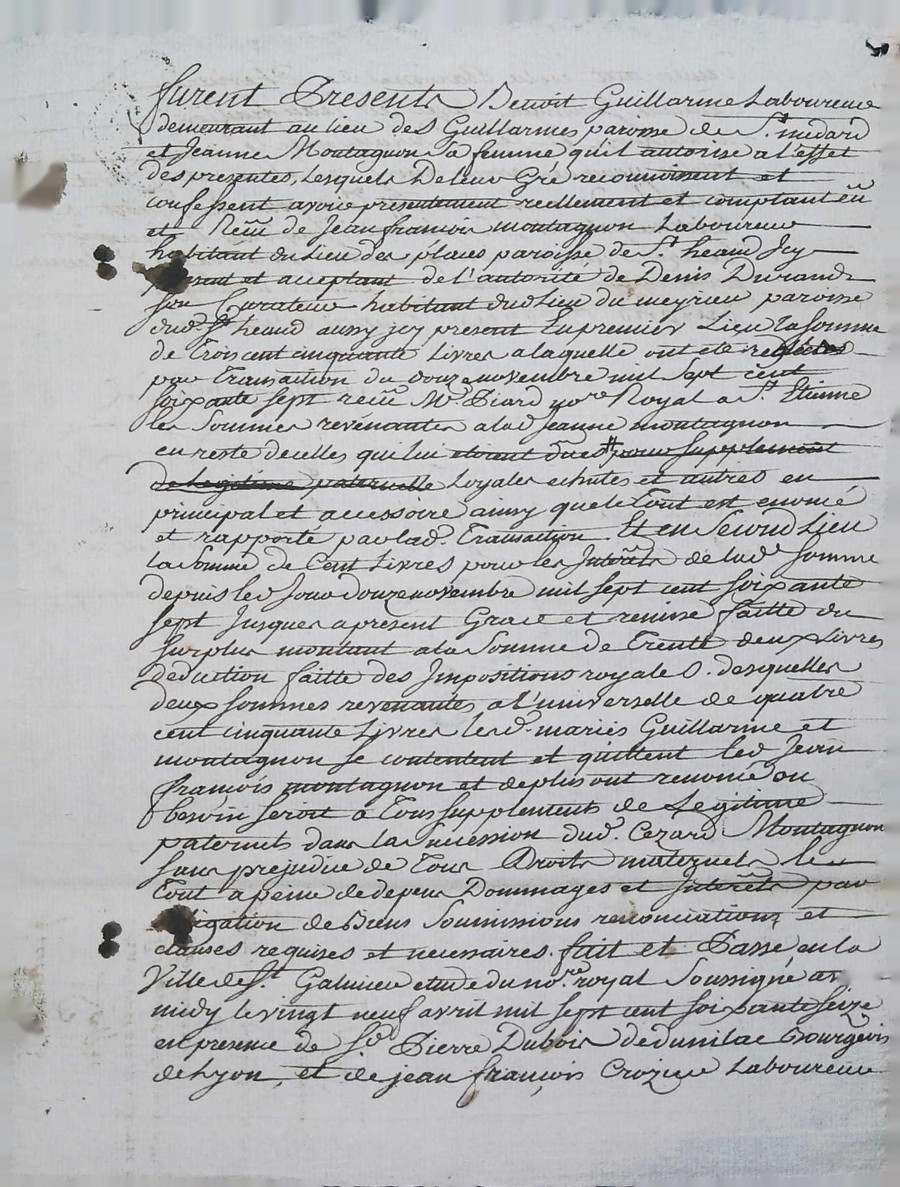 furent Presents Benoit Guillarme Laboureur
demeurant au lieu des Guillarmes paroisse de St. medard
et Jeanne Montagnon Sa femme qu'il autorise a l'effet
des presentes, Lesquels De leur Gré reconnoissent et
confessent avoir presentement reellement et comptant eü
et Reçû de Jean francois montagnon Laboureur
habitant du Lieu des places paroisse de St. heand Jcy
present et acceptant de l'autorité de Denis Durand
Son Curateur habitant dud. Lieu du meyrieu paroisse
dud. St. heand aussy jcy present En premier Lieu La somme
de Trois cent cinquante Livres a laquelle ont eté reglées
par Transaction du douze novembre mil Sept cent
soixante sept reçüe Me. Piard nore. Royal a St. Etienne
les Sommes revenantes a lad. Jeanne montagnon
en reste de celles qui lui etoient dües # pour supplement
de Legitime paternelle Loyales echutes et autres en
principal et accessoire ainsy que le Tout est enoncé
et rapporté par lad. Transaction. Et en Second Lieu
la Somme de Cent Livres pour les Interêts de lad. Somme
depuis led. Jour douze novembre mil sept cent soixante
sept Jusques a present Grace et remise faitte du
surplus montant a la Somme de Trente deux Livres
deduction faitte des Impositions royales. desquelles
deux sommes revenantes a l'universelle de quatre
cent cinquante Livres lesd. mariés Guillarme et
montagnon se contentent et quittent led. Jean
francois montagnon et de plus ont renoncé ou
besoin seroit à Tous supplements de Legitime
paternels dans la Succession dud. Cezard Montagnon
sans prejudice de Tous Droits maternels le
Tout a peine de depens Dommages et Interêts par
obligation de Biens Soumissions renonciations et
clauses requises et necessaires. fait et Passé en la
Ville de St. Galmier etude du nore. royal Soussigné av.
midy le vingt neuf avril mil sept cent soixante seize
en presence de Sr. Pierre Dubois dedunilac Bourgeois
de Lyon, et de jean françois Crozier Laboureur